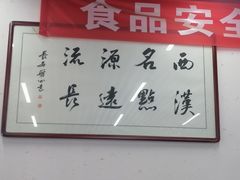 食品安全
西漢
名點
源遠
流長